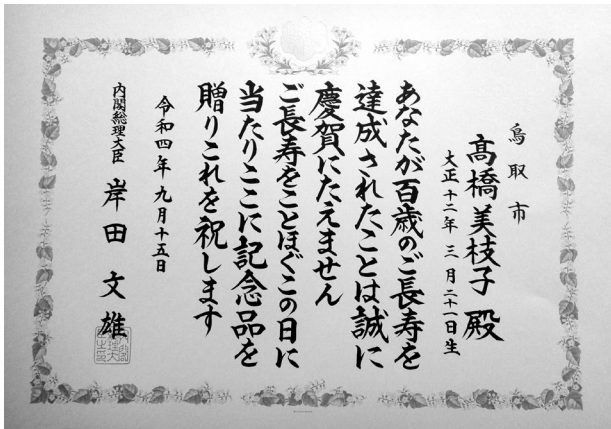 鳥取市
髙橋美枝子 殿
大正十二年 三月二十一日生
あなたが百歳のご長寿を
達成されたことは誠に
慶賀にたえません
ご長寿をことほぐこの日に
当たりここに記念品を
贈りこれを祝します
令和四年九月十五日
内閣総理大臣 岸田文雄